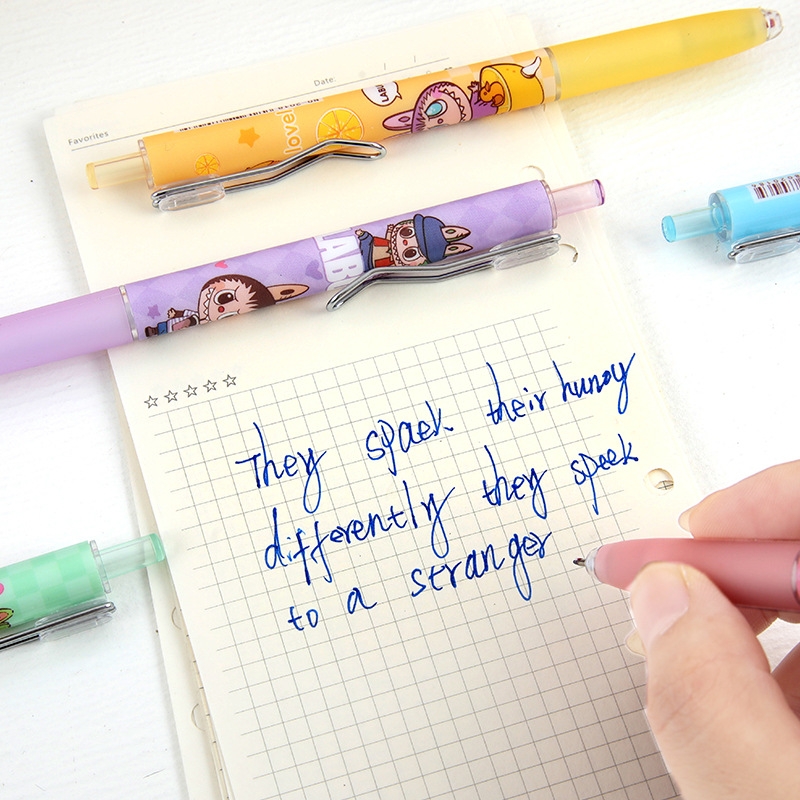 Date: / /
Favorites
love
LABU
LABU
They spaek their hunoy
differently they speek
to a stranger